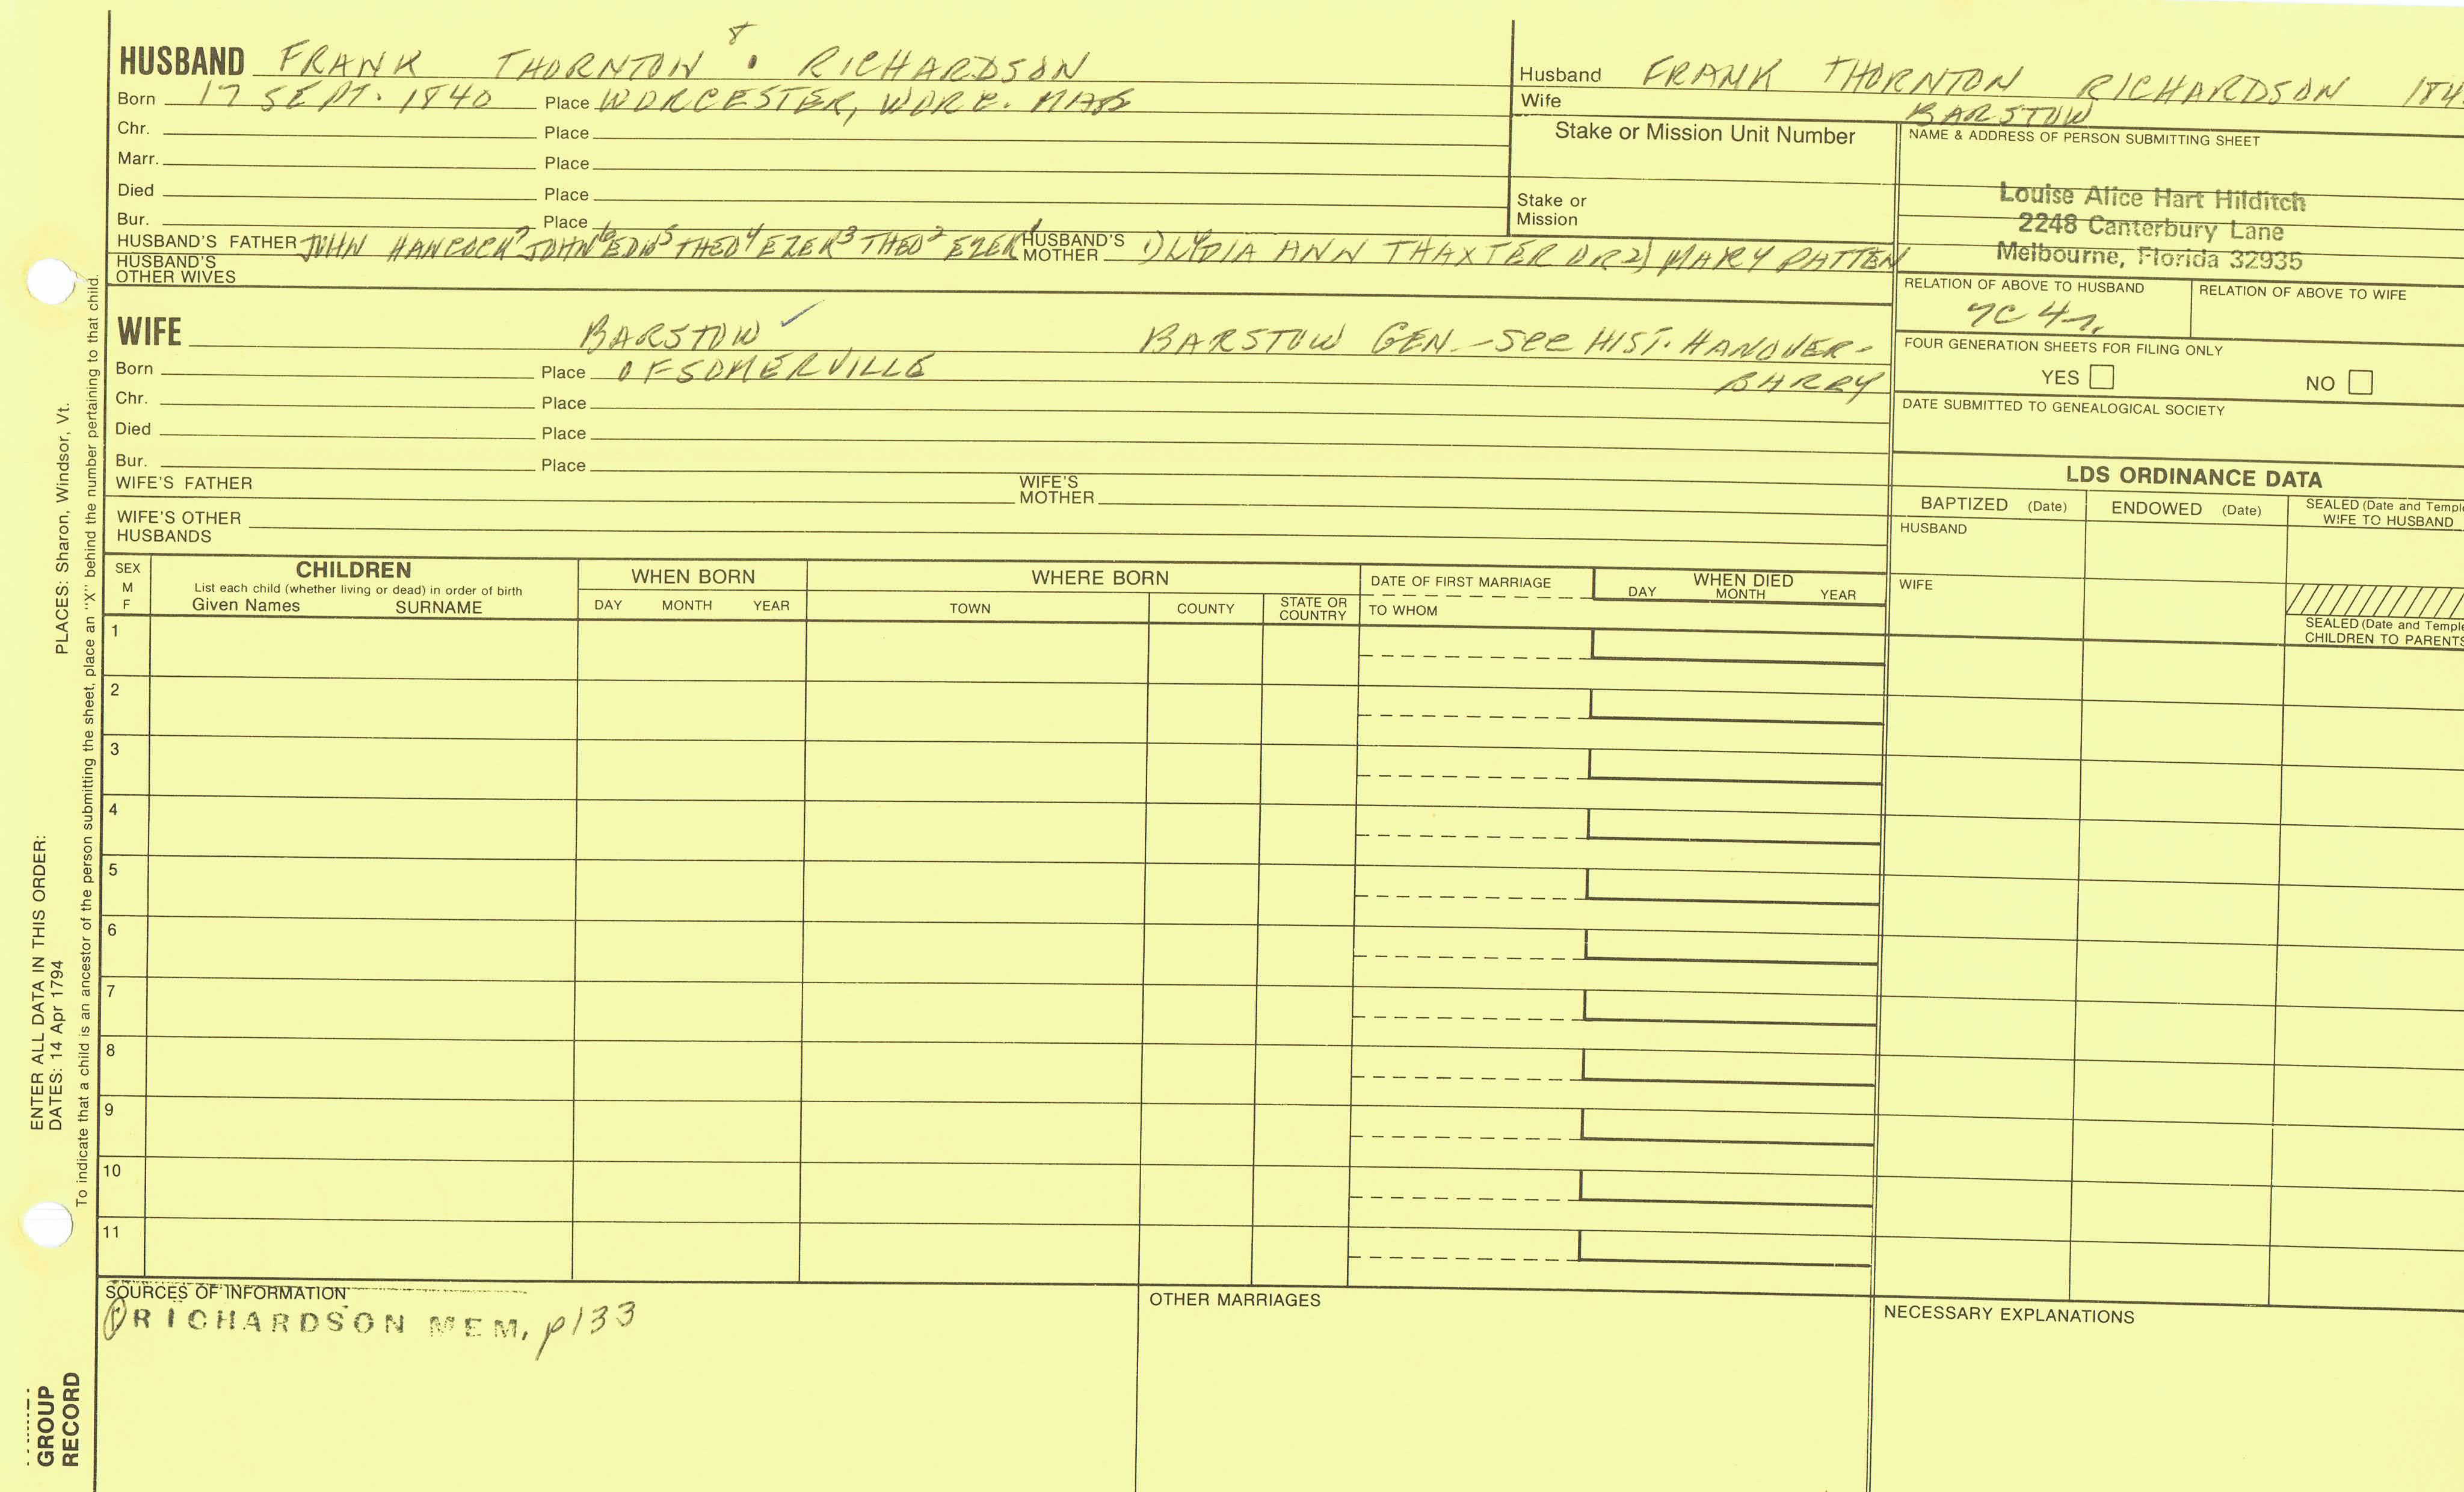 HUSBAND FRANK THORNTON 8. RICHARDSON
Born 17 SEPT. 1840 Place WORCESTER, WORC. MASS
Chr. Place
Marr. Place
Died Place
Bur. Place
HUSBAND'S FATHER JOHN HANCOCK7 JOHN6 EDW5 THEO4 EZEK3 THEO2 EZEK1 HUSBAND'S MOTHER 1) LYDIA ANN THAXTER OR 2) MARY PATTEN
HUSBAND'S OTHER WIVES
WIFE BARSTOW ✓ BARSTOW GEN. - SEE HIST. HANOVER -
BARRY
Born Place OF SOMERVILLE
Chr. Place
Died Place
Bur. Place
WIFE'S FATHER WIFE'S MOTHER
WIFE'S OTHER HUSBANDS
Husband FRANK THORNTON RICHARDSON 184
Wife BARSTOW
Stake or Mission Unit Number
Stake or
Mission
NAME & ADDRESS OF PERSON SUBMITTING SHEET
Louise Alice Hart Hilditch
2248 Canterbury Lane
Melbourne, Florida 32935
RELATION OF ABOVE TO HUSBAND RELATION OF ABOVE TO WIFE
7C 4r.
FOUR GENERATION SHEETS FOR FILING ONLY
YES NO
DATE SUBMITTED TO GENEALOGICAL SOCIETY
LDS ORDINANCE DATA
BAPTIZED (Date) ENDOWED (Date) SEALED (Date and Temple
WIFE TO HUSBAND
HUSBAND
WIFE
SEALED (Date and Temple
CHILDREN TO PARENTS
SEX
M
F
CHILDREN
List each child (whether living or dead) in order of birth
Given Names SURNAME
WHEN BORN
DAY MONTH YEAR
WHERE BORN
TOWN COUNTY STATE OR COUNTRY
DATE OF FIRST MARRIAGE
TO WHOM
WHEN DIED
DAY MONTH YEAR
1
2
3
4
5
6
7
8
9
10
11
SOURCES OF INFORMATION
① RICHARDSON MEM, p133
OTHER MARRIAGES
NECESSARY EXPLANATIONS
ENTER ALL DATA IN THIS ORDER:
DATES: 14 Apr 1794 PLACES: Sharon, Windsor, Vt.
To indicate that a child is an ancestor of the person submitting the sheet, place an "X" behind the number pertaining to that child.
GROUP
RECORD